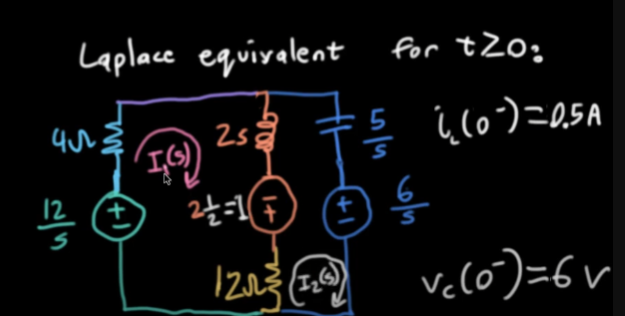 Laplace equivalent for t≥0:
4Ω
I₁(s)
2s
5/s
i_L(0⁻)=0.5A
12/s
+
−
2½=1
−
+
+
−
6/s
12Ω
I₂(s)
v_c(0⁻)=6 V